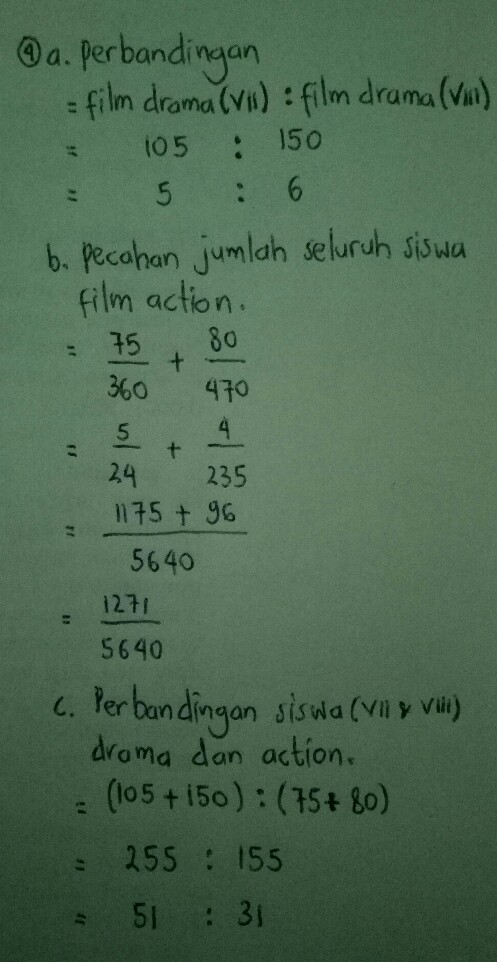 ④ a. perbandingan
= film drama (VII) : film drama (VIII)
= 105 : 150
= 5 : 6
b. pecahan jumlah seluruh siswa
film action.
= 75/360 + 80/470
= 5/24 + 4/235
= 1175 + 96 / 5640
= 1271/5640
c. Perbandingan siswa (VII & VIII)
drama dan action.
= (105 + 150) : (75 + 80)
= 255 : 155
= 51 : 31